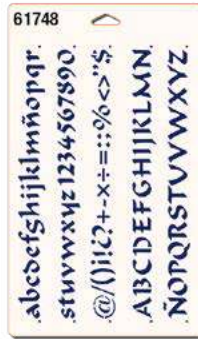 61748
abcdefghijklmnñopqr.
stuvwxyz1234567890.
@/()!¡¿?+-×÷=:;%<>"$.
ABCDEFGHIJKLMN.
ÑOPQRSTUVWXYZ.